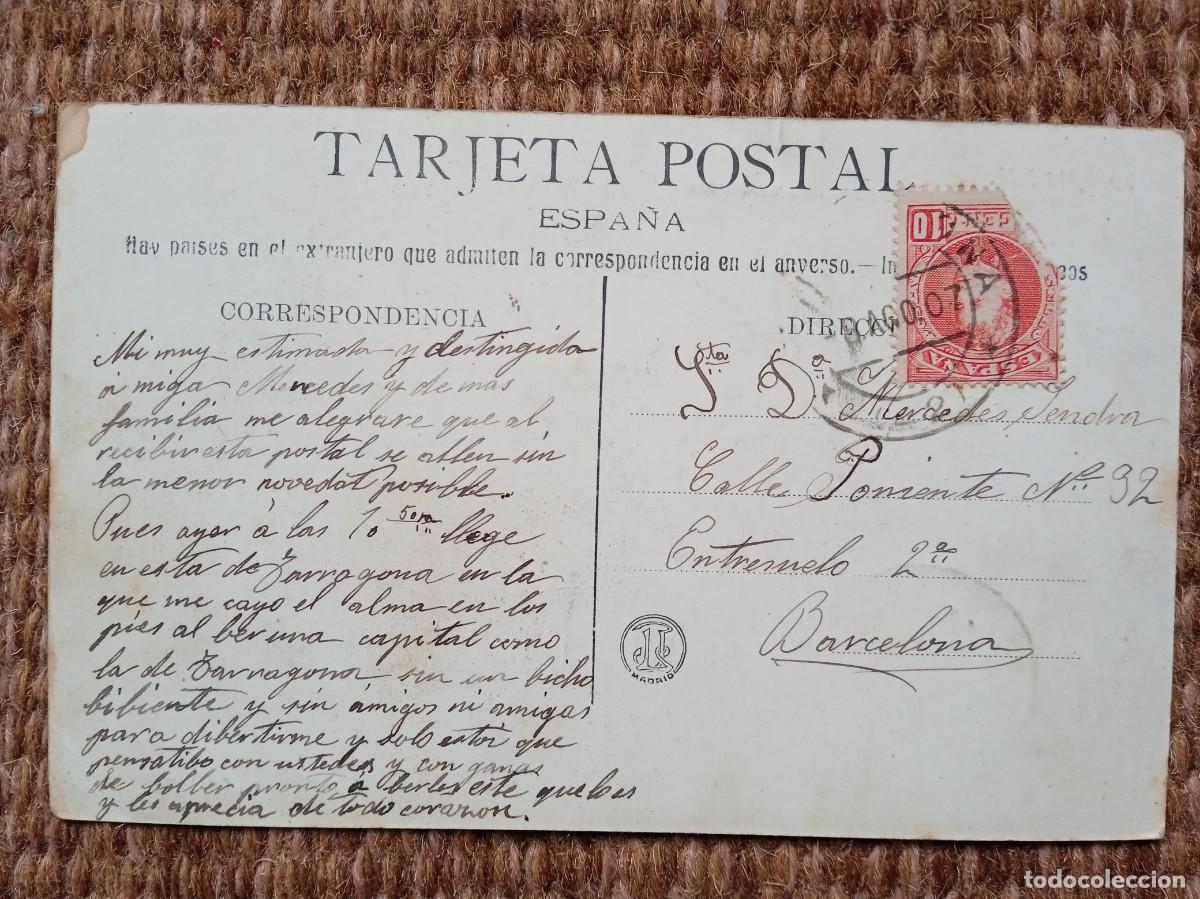 TARJETA POSTAL
ESPAÑA
Hay paises en el extranjero que admiten la correspondencia en el anverso.—In
cos
CORRESPONDENCIA
Mi muy estimada y destingida
a miga Mercedes y de mas
familia me alegrare que al
recibir esta postal se allen sin
la menor novedat posible.
Pues ayer á las 10 llege
en esta de Tarragona en la
que me cayo el alma en los
pies al ber una capital como
la de Tarragona sin un bicho
bibiente y sin amigos ni amigas
para dibertirme y solo estoi que
pensatibo con ustedes y con ganas
de bolber pronto á berles este que las
y les aprecia de todo corazon.
DIRECC
Sta Da Mercedes Sendra
Calle Poniente No 92
Entresuelo 2a
Barcelona
MADRID
10
CENT
ESPAÑA
AGO 07
todocoleccion